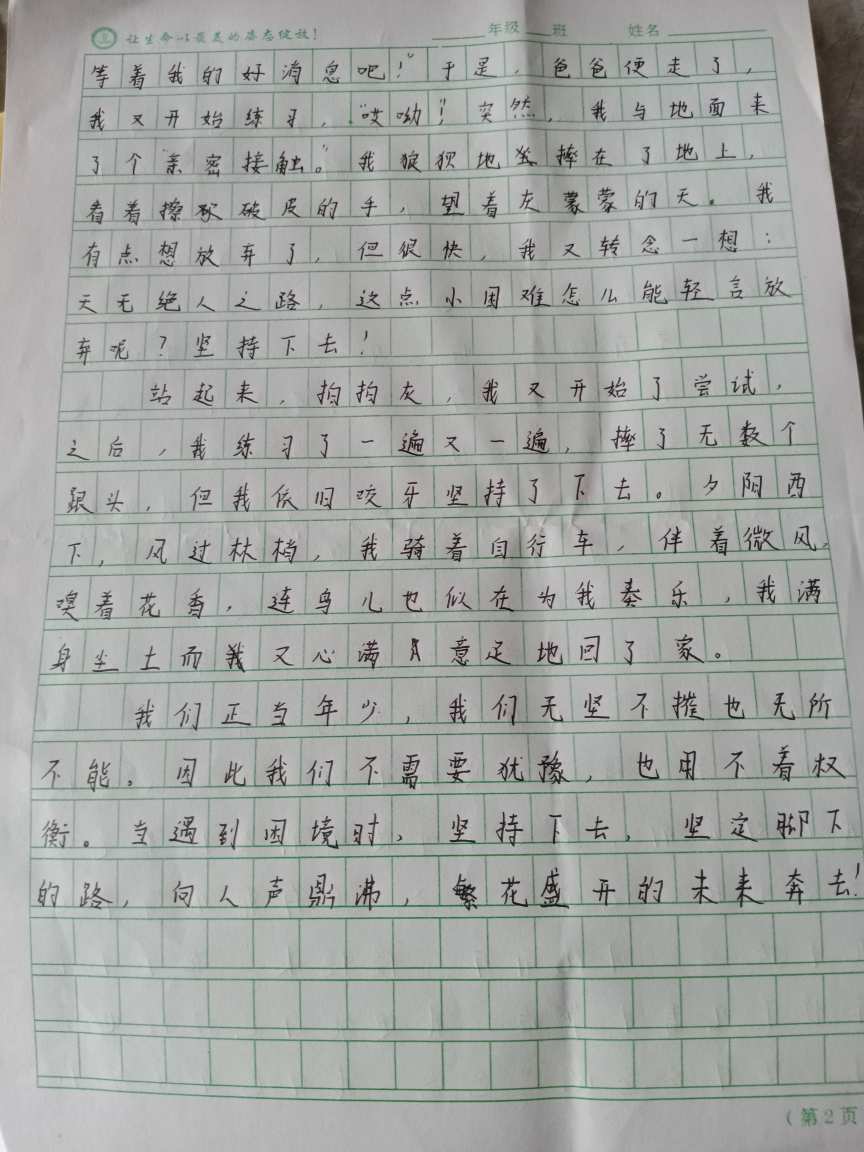 让生命以最美的姿态绽放！ 年级 班 姓名
等着我的好消息吧！”于是，爸爸便走了，
我又开始练习，“哎呦！突然，我与地面来
了个亲密接触。”我狼狈地坐摔在了地上，
看着擦破皮的手，望着灰蒙蒙的天。我
有点想放弃了，但很快，我又转念一想：
天无绝人之路，这点小困难怎么能轻言放
弃呢？坚持下去！
站起来，拍拍灰，我又开始了尝试，
之后，我练习了一遍又一遍，摔了无数个
跟头，但我依旧咬牙坚持了下去。夕阳西
下，风过林梢，我骑着自行车，伴着微风，
嗅着花香，连鸟儿也似在为我奏乐，我满
身尘土而我又心满意足地回了家。
我们正当年少，我们无坚不摧也无所
不能。因此我们不需要犹豫，也用不着权
衡。当遇到困境时，坚持下去，坚定脚下
的路，向人声鼎沸，繁花盛开的未来奔去！
（第2页